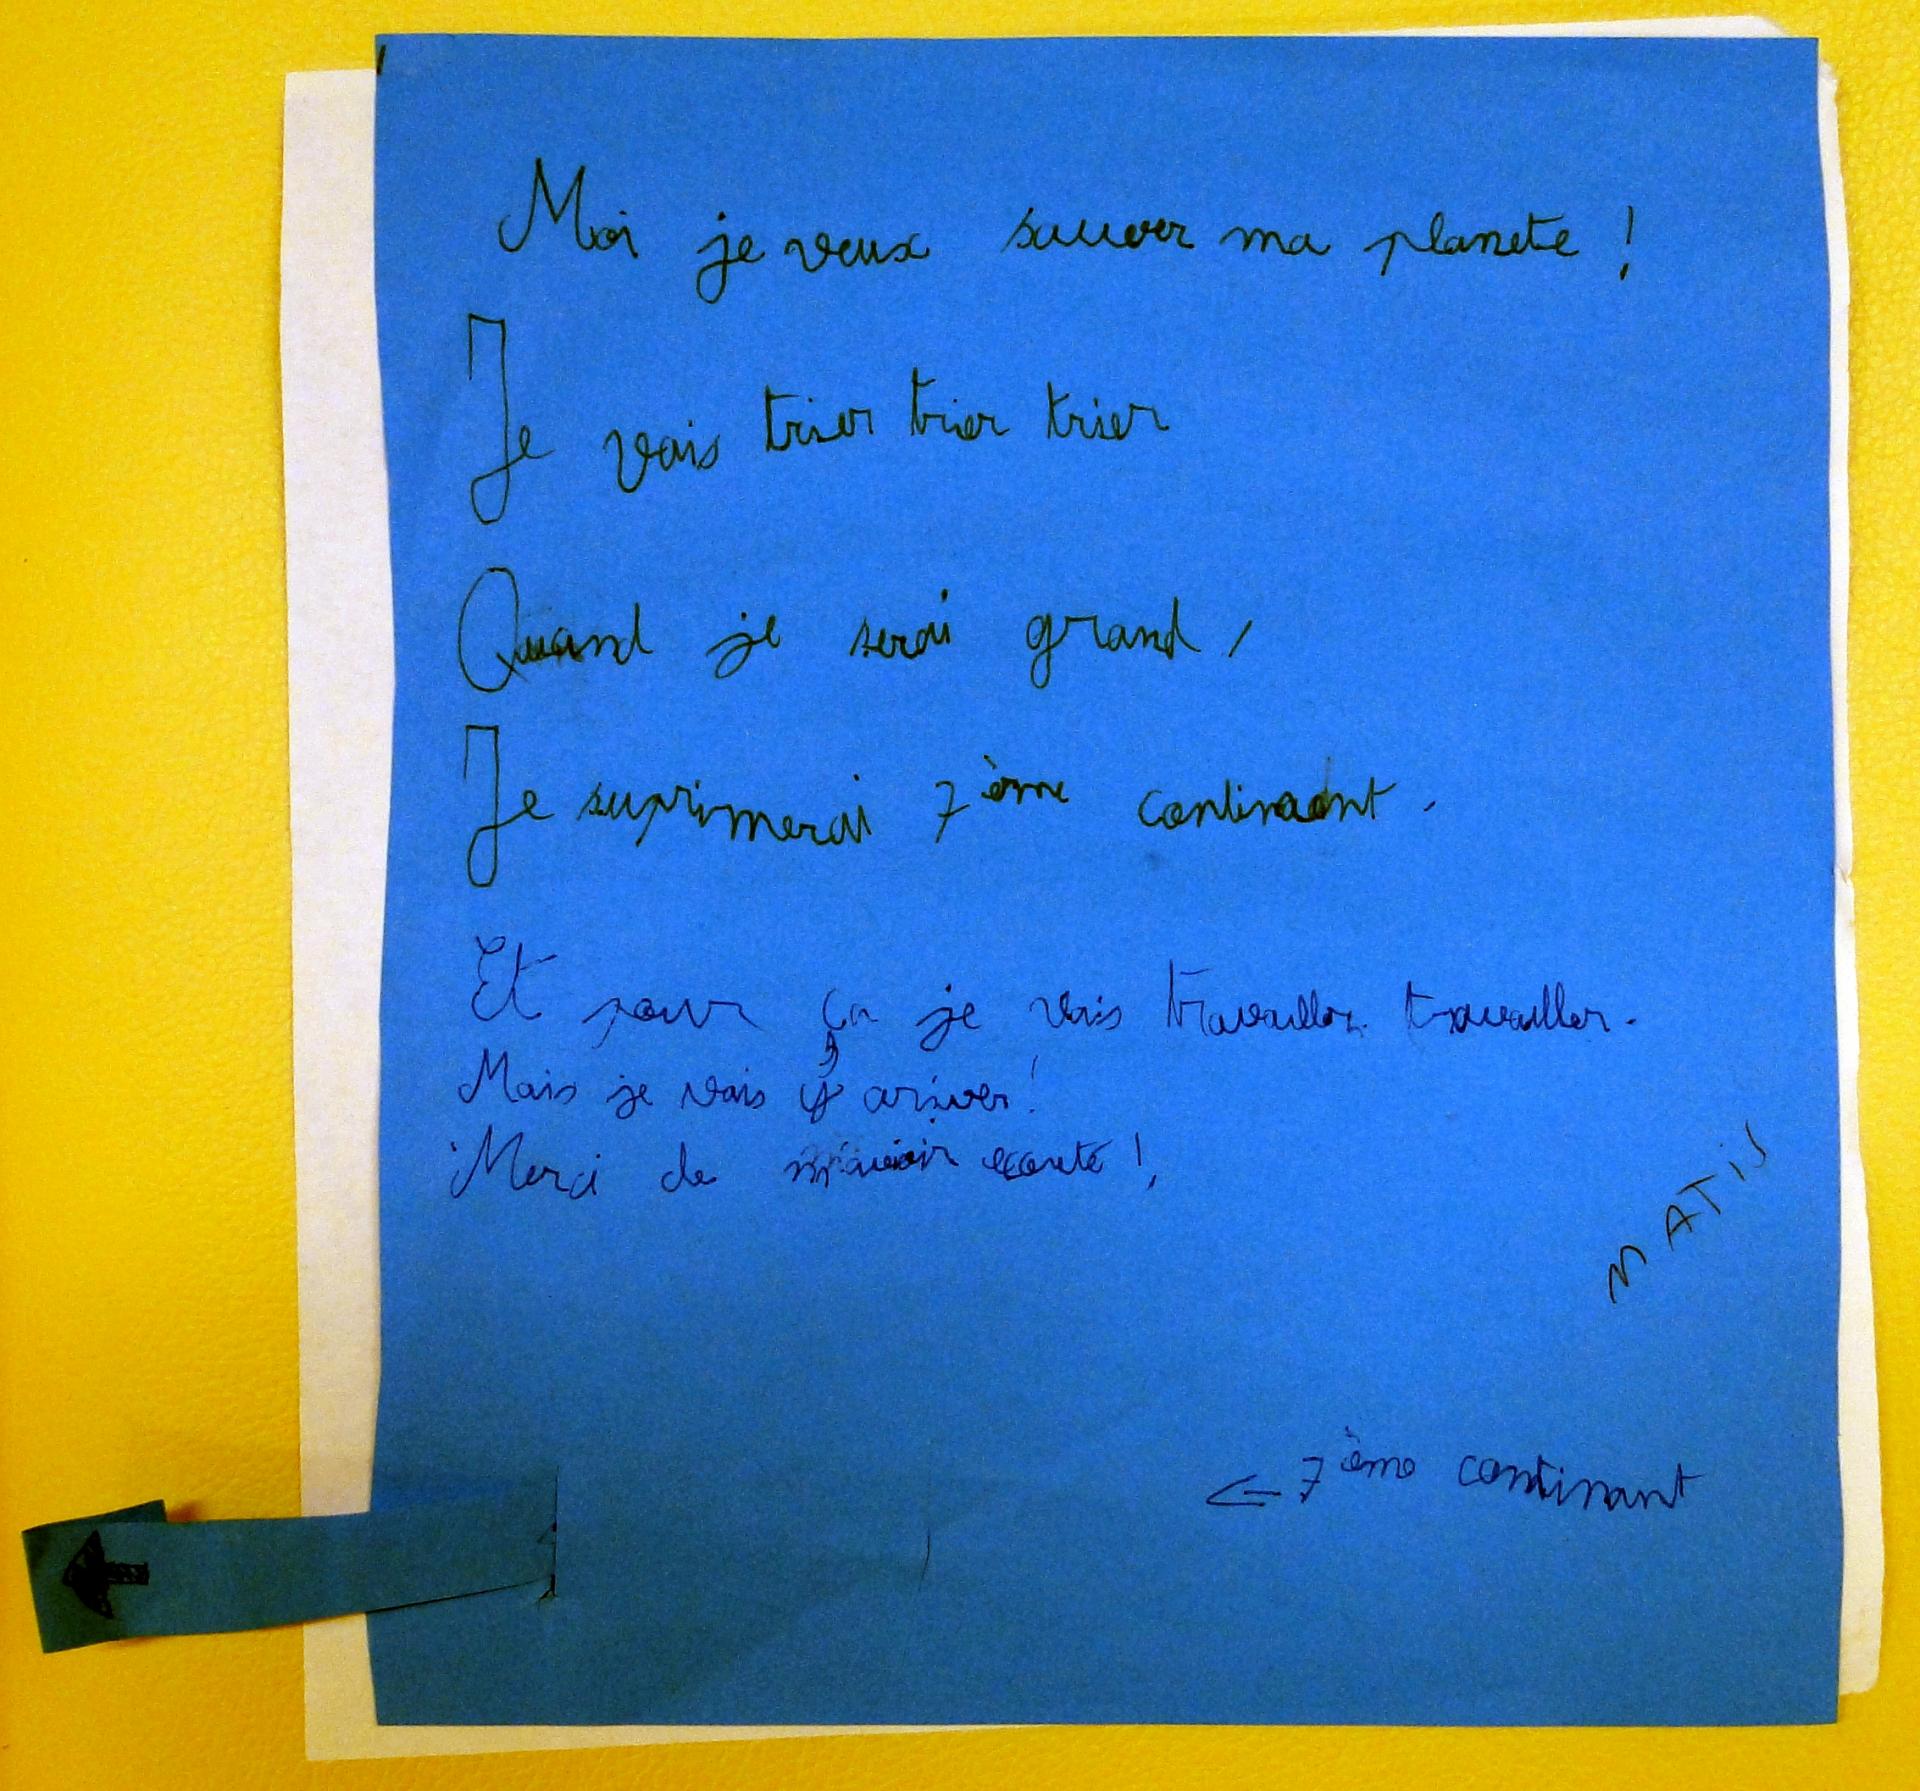 Moi je veux sauver ma planete !
Je vais trier trier trier
Quand je serai grand,
Je suprimerai 7ème continant.
Et pour ça je vais travailler travailler.
Mais je vais y ariver !
Merci de m'avoir écouté !
MATiS
← 7ème continant